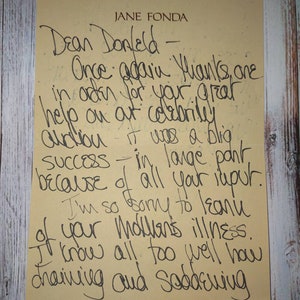 JANE FONDA
Dear Donfeld –
Once again thanks are
in order for your great
help on at celebrity
auction it was a big
success – in large part
because of all your input.
I'm so sorry to learn
of your mother's illness.
I know all too well how
draining and saddening